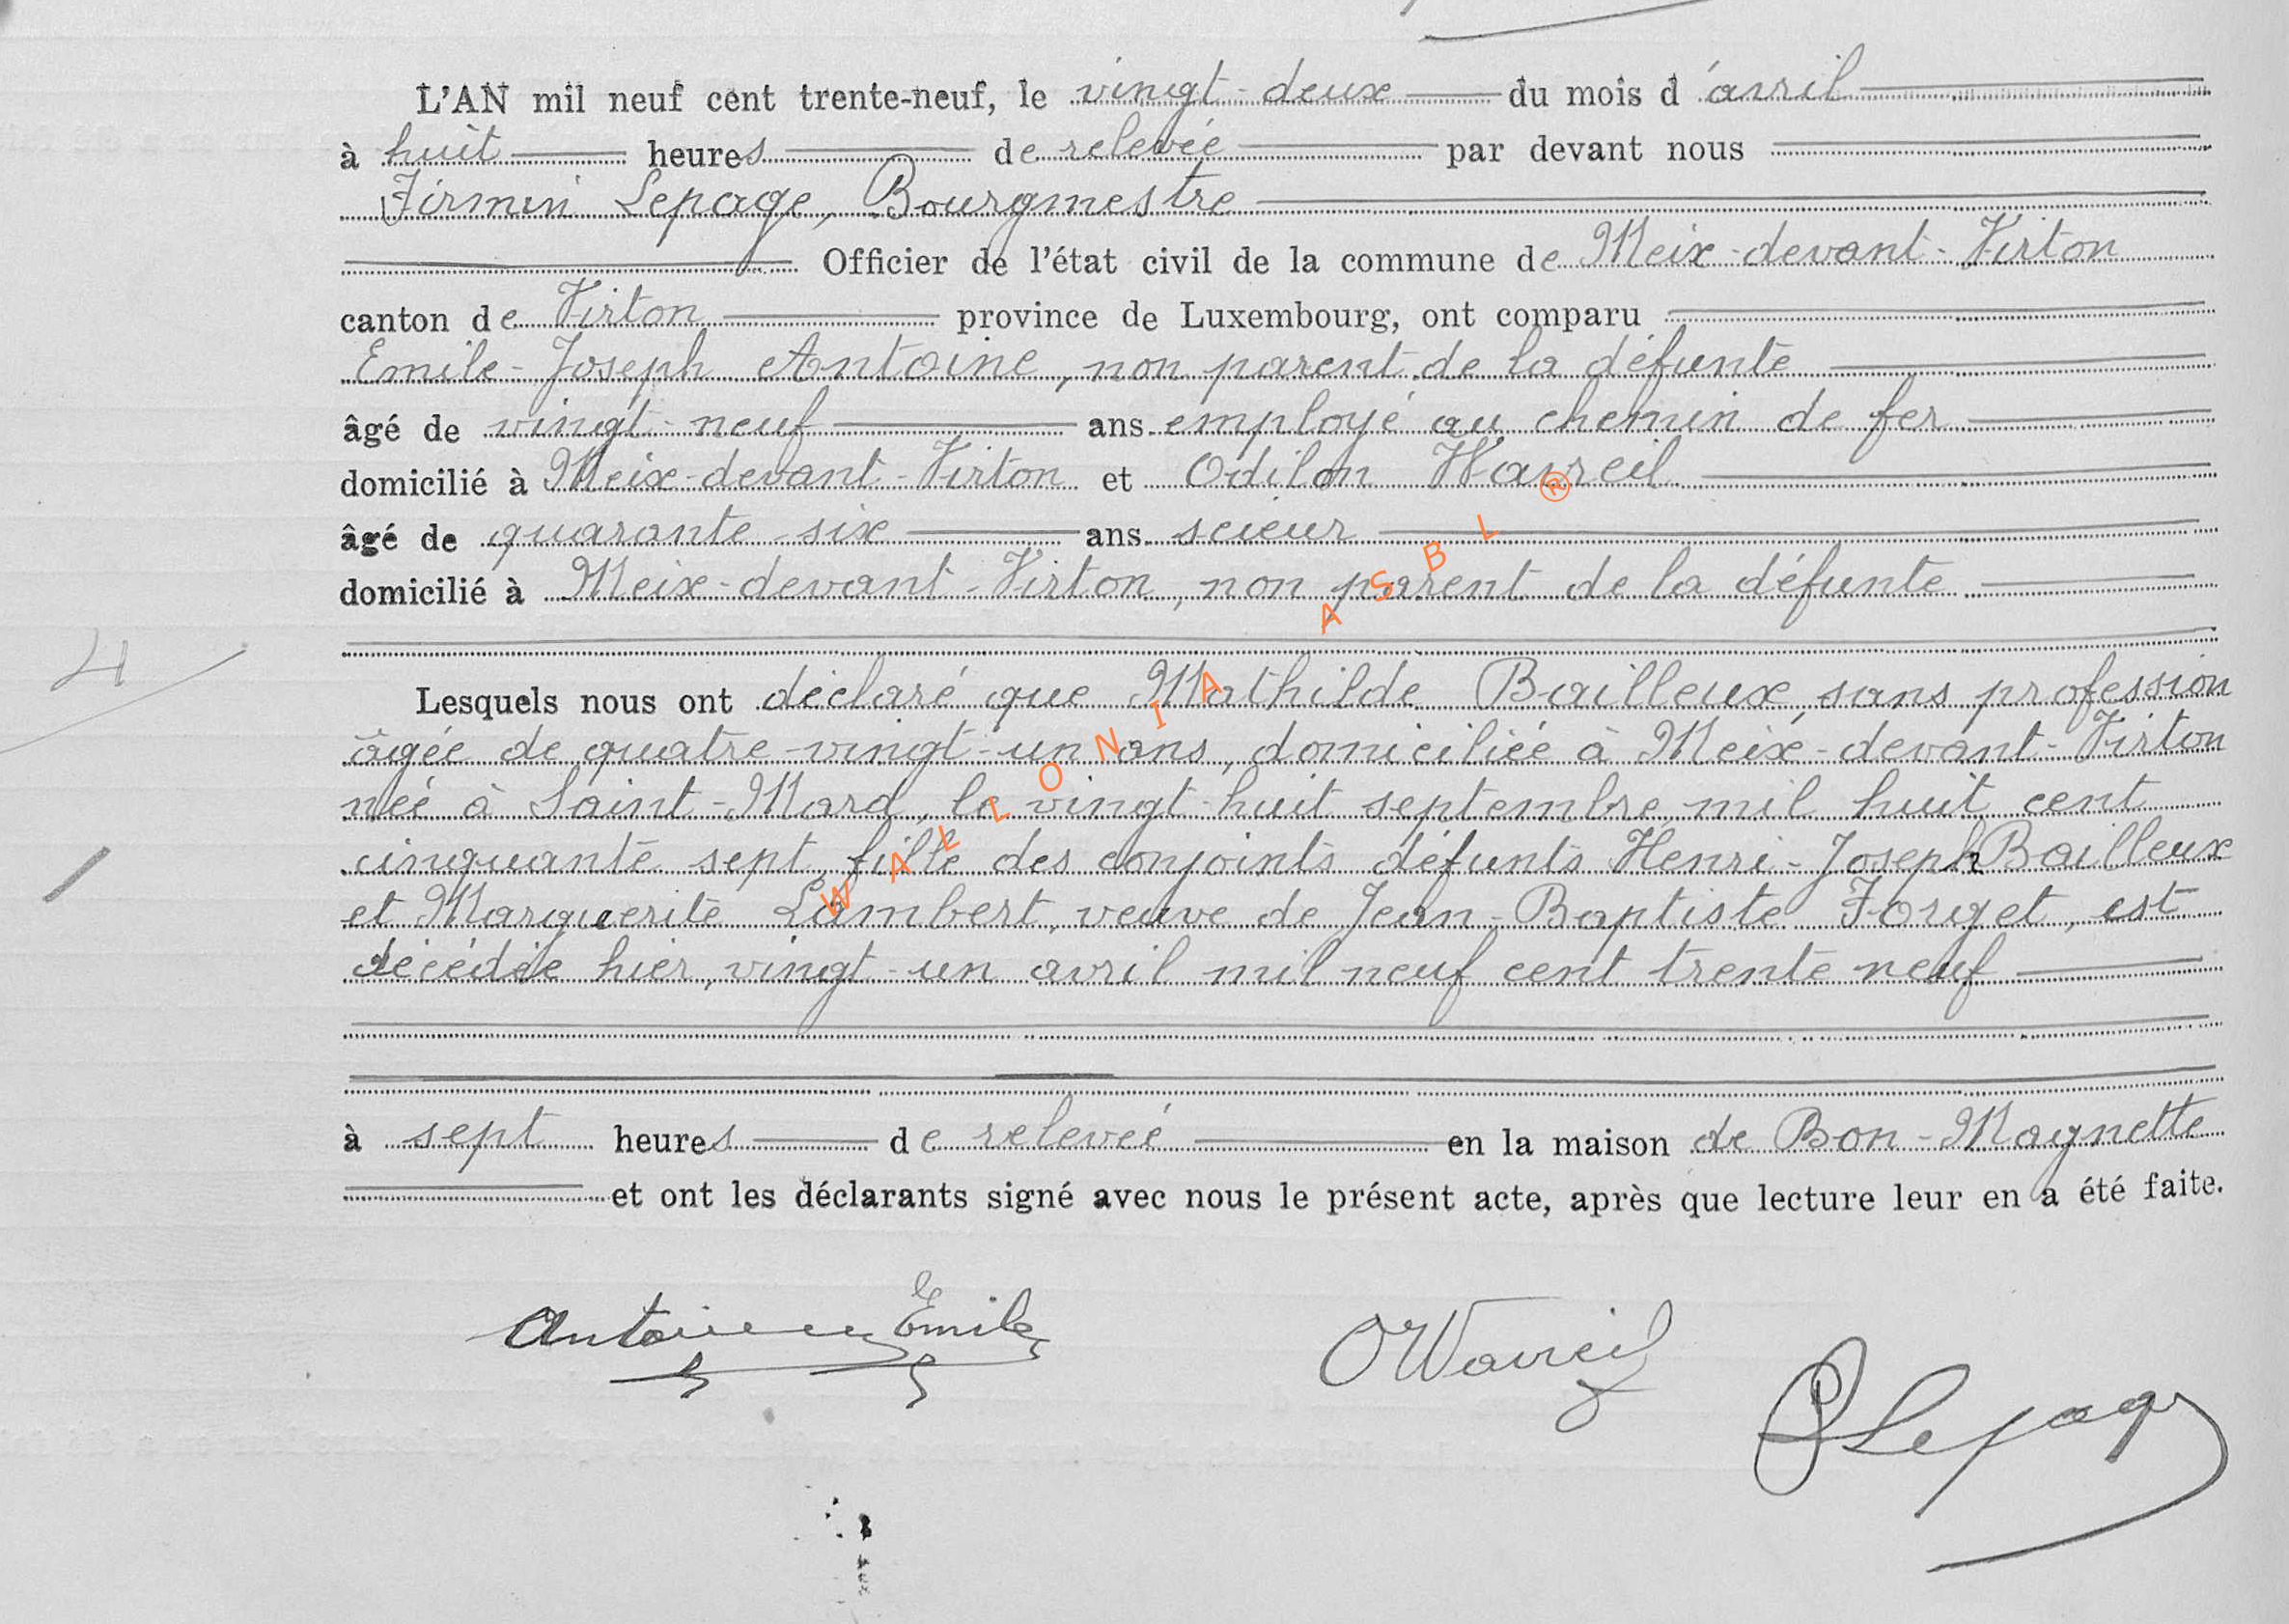 L'AN mil neuf cent trente-neuf, le vingt-deux du mois d'avril
à huit heures de relevée par devant nous
Firmin Lepage, Bourgmestre
Officier de l'état civil de la commune de Meix-devant-Virton
canton de Virton province de Luxembourg, ont comparu
Emile-Joseph Antoine, non parent de la défunte
âgé de vingt-neuf ans employé au chemin de fer
domicilié à Meix-devant-Virton et Odilon Wavreil
âgé de quarante-six ans scieur
domicilié à Meix-devant-Virton, non parent de la défunte
4
Lesquels nous ont déclaré que Mathilde Bailleux, sans profession
âgée de quatre-vingt-un ans, domiciliée à Meix-devant-Virton
née à Saint-Mard, le vingt-huit septembre mil huit cent
cinquante sept, fille des conjoints défunts Henri-Joseph Bailleux
et Marguerite Lambert, veuve de Jean-Baptiste Forget, est
décédée hier, vingt-un avril mil neuf cent trente neuf
à sept heures de relevée en la maison de Bon-Magnette
et ont les déclarants signé avec nous le présent acte, après que lecture leur en a été faite.
Antoine Emile
OWavreil
Lepage
WALLONIA ASBL ®